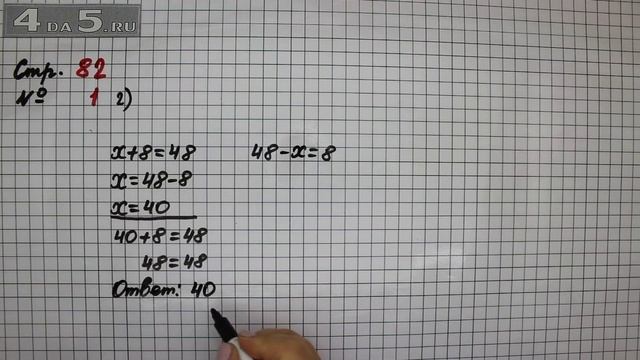 4 DA 5.RU
Стр. 82
№ 1 2)
x+8=48
x=48-8
x=40
40+8=48
48=48
Ответ: 40
48-x=8